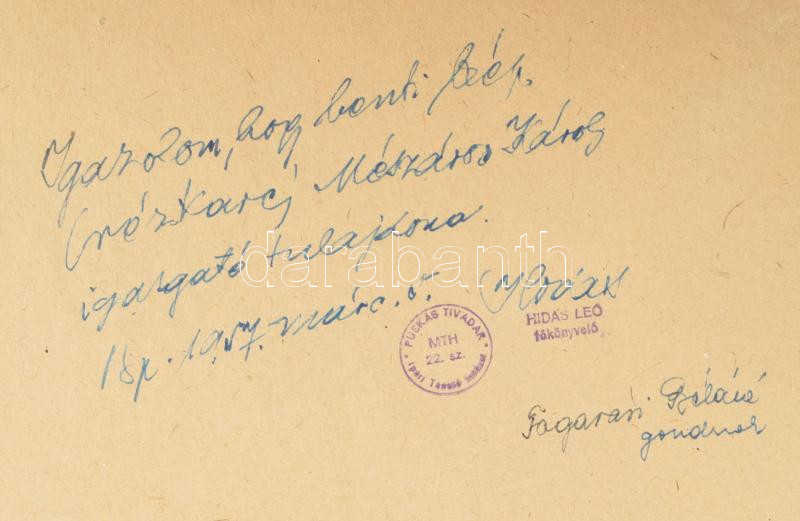 Igazolom, hogy benti kép
(rézkarc) Mészáros Károly
igazgató tulajdona.
Bp. 1957. márc. 5.
PUSKÁS TIVADAR
MTH
22. sz.
Ipari Tanuló Intézet
HIDAS LEÓ
főkönyvelő
Fogarasi Béláné
gondnok
darabanth